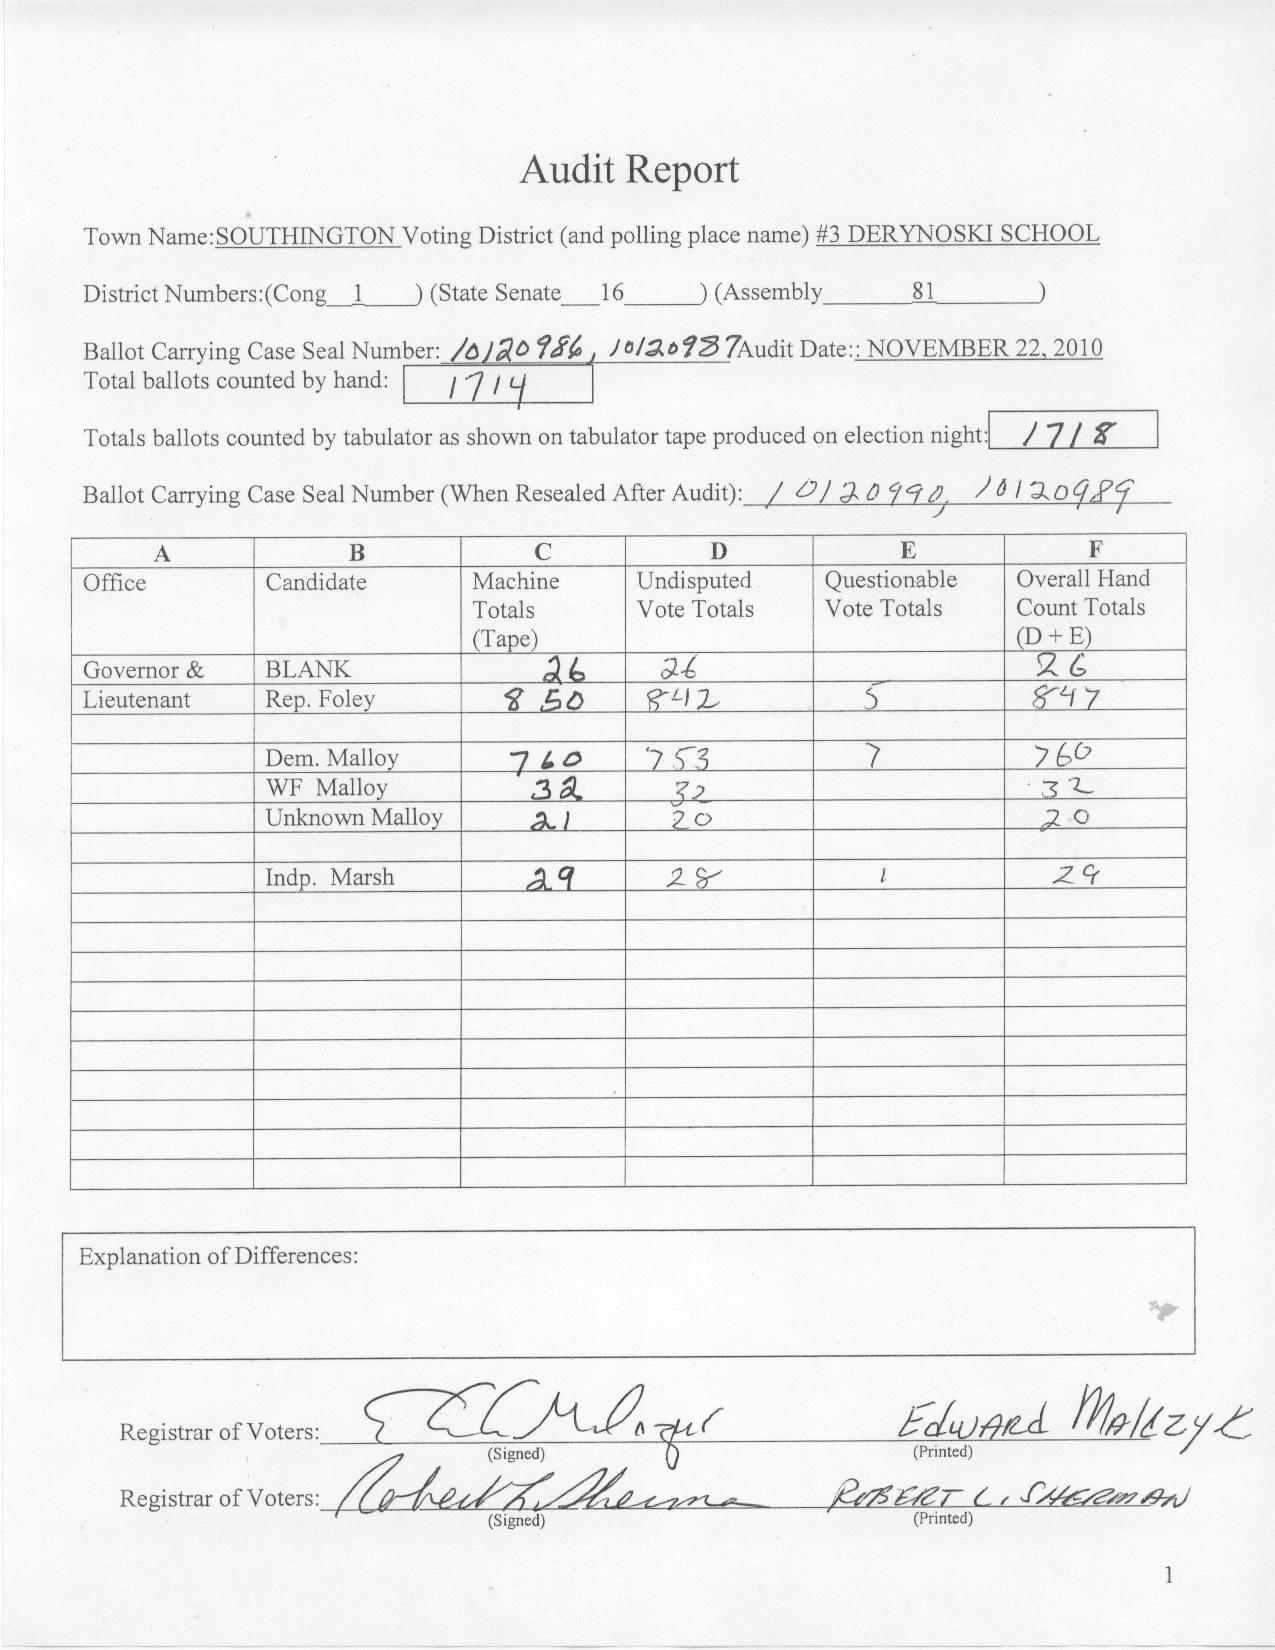 Audit Report
Town Name:SOUTHINGTON Voting District (and polling place name) #3 DERYNOSKI SCHOOL
District Numbers:(Cong 1 ) (State Senate 16 ) (Assembly 81 )
Ballot Carrying Case Seal Number: 10120986, 10120987 Audit Date:: NOVEMBER 22, 2010
Total ballots counted by hand: 1714
Totals ballots counted by tabulator as shown on tabulator tape produced on election night: 1718
Ballot Carrying Case Seal Number (When Resealed After Audit): 10120990, 10120989
A B C D E F
Office Candidate Machine Undisputed Questionable Overall Hand
Totals Vote Totals Vote Totals Count Totals
(Tape) (D + E)
Governor & BLANK 26 26 26
Lieutenant Rep. Foley 850 842 5 847
Dem. Malloy 760 753 7 760
WF Malloy 32 32 32
Unknown Malloy 21 20 20
Indp. Marsh 29 28 1 29
Explanation of Differences:
Registrar of Voters: Edward Malczyk
(Signed) (Printed)
Registrar of Voters: Robert L. Sherman ROBERT L. SHERMAN
(Signed) (Printed)
1